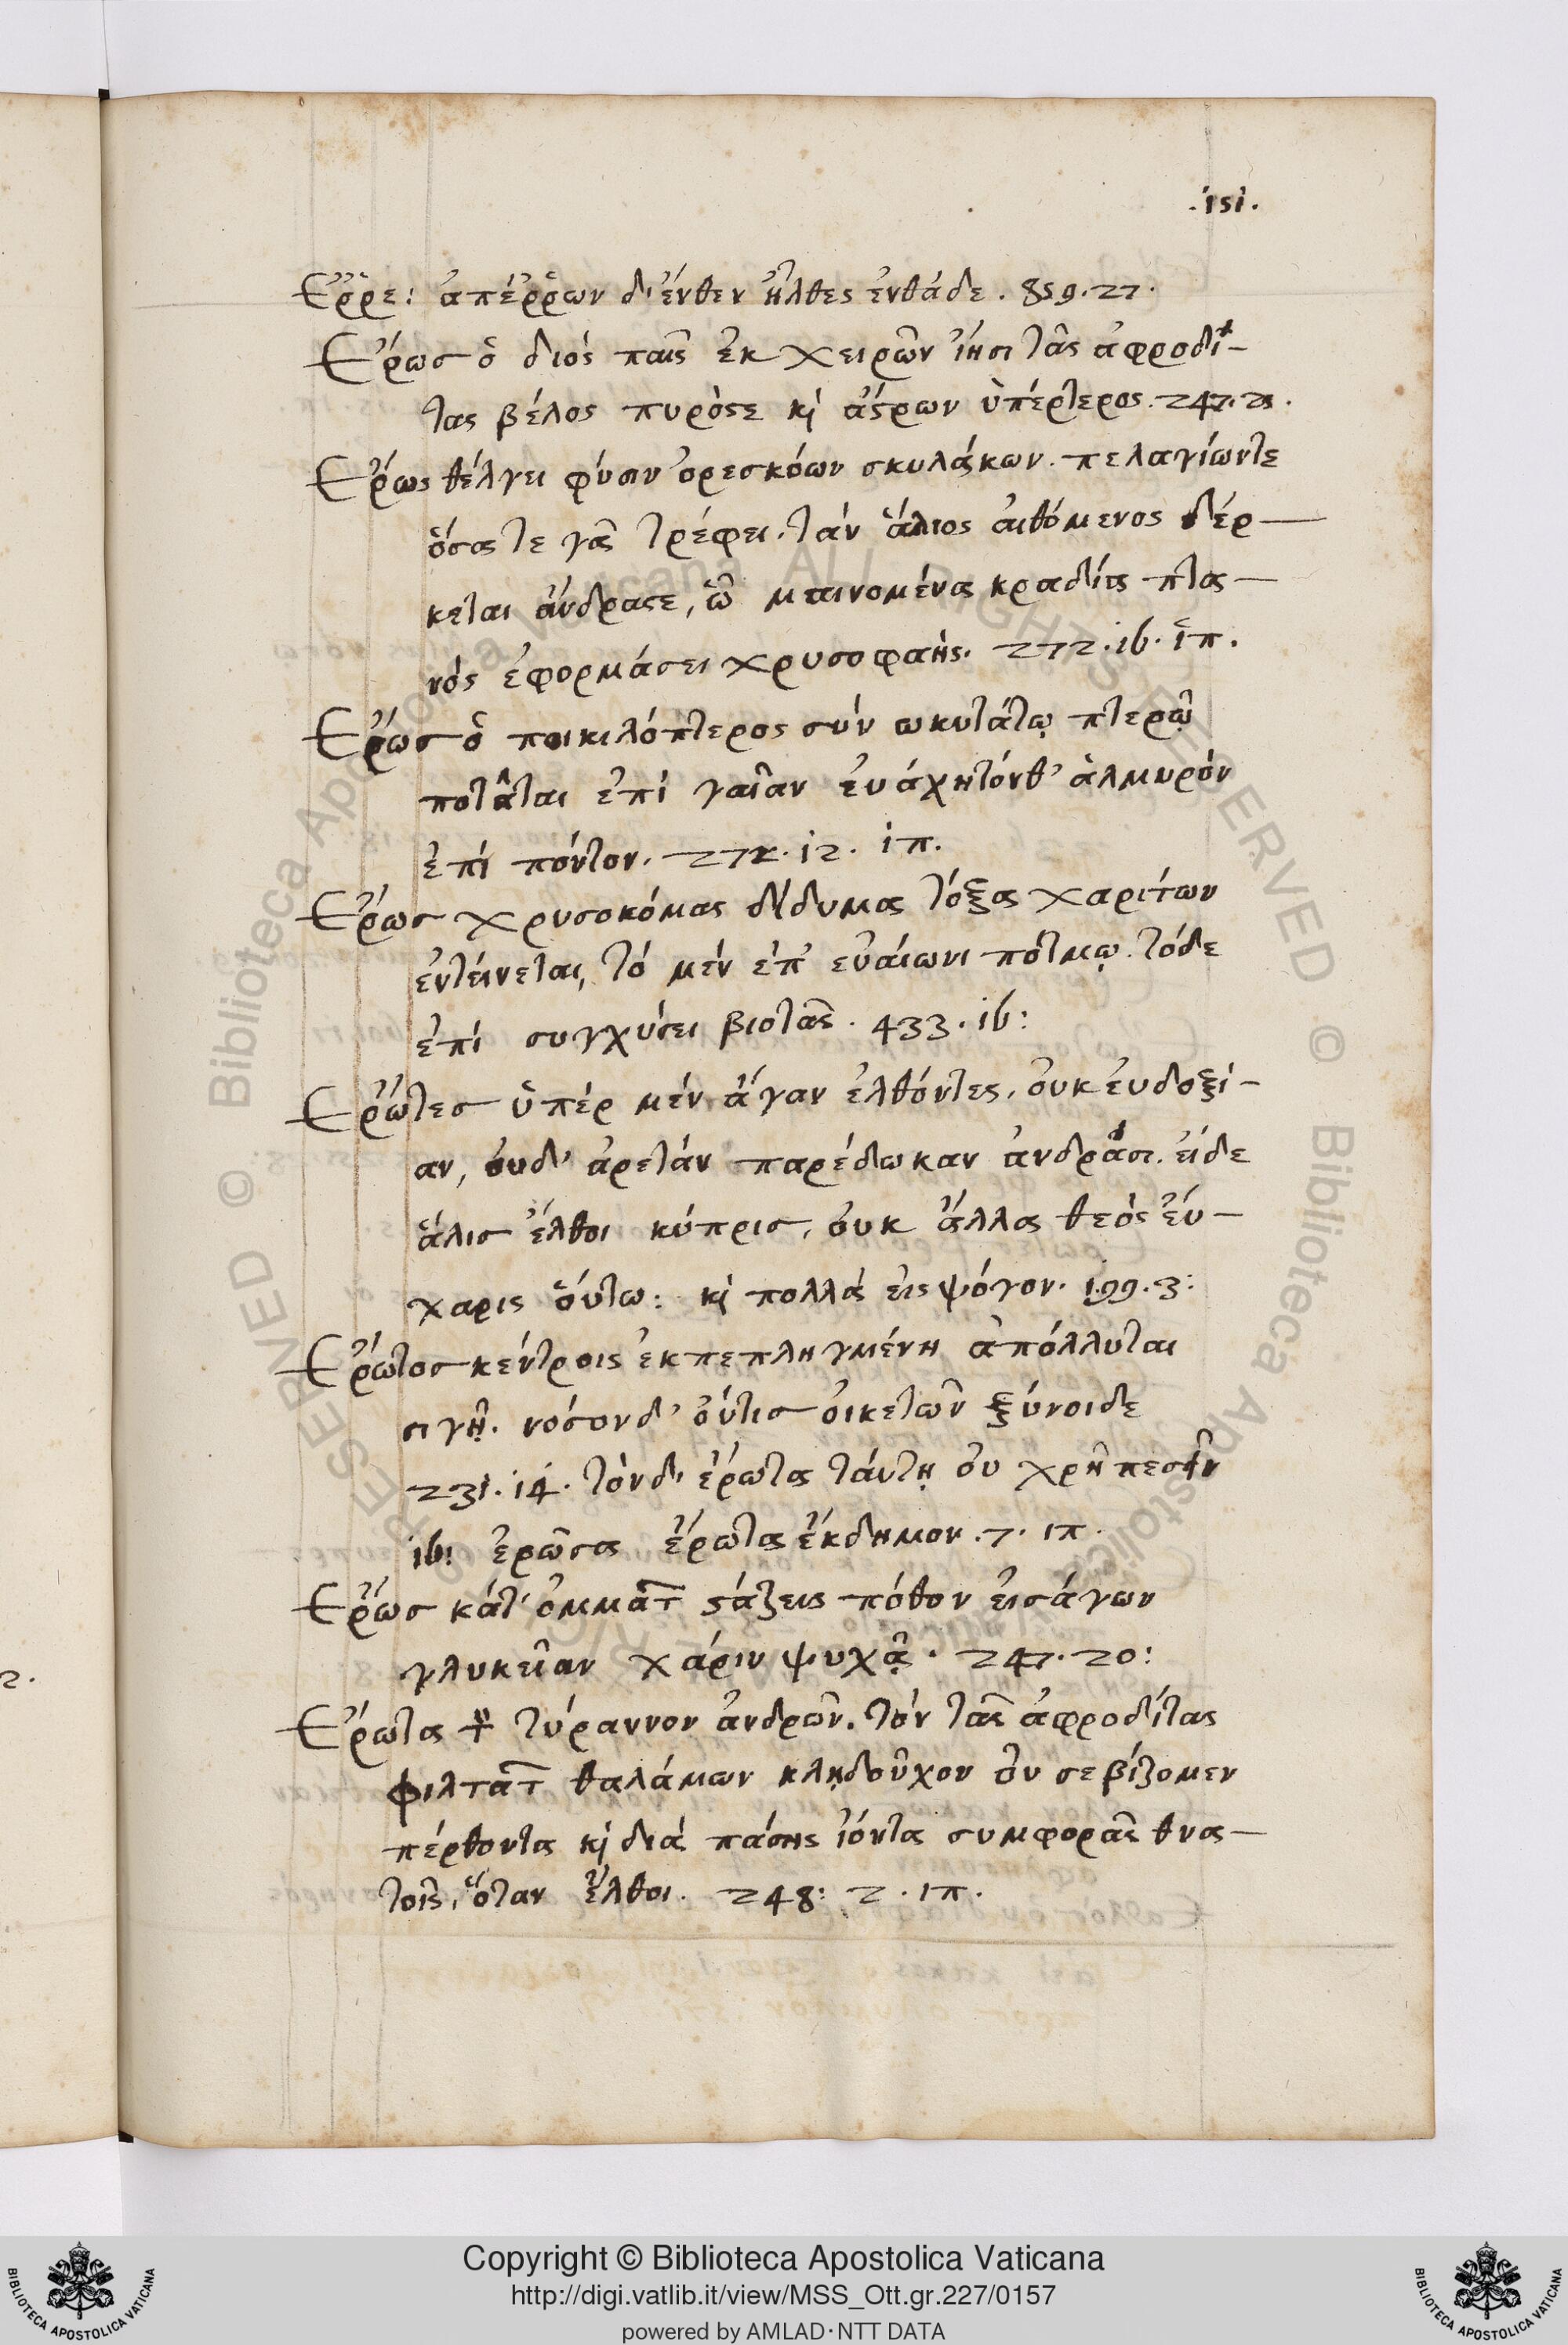 .151.
Ἔῤῥε: ἀπέῤῥων δ' ἔνθεν ἦλθες ἐνθάδε. 859.27.
Ἔρωσ ὁ διός παῖς ἐκ χειρῶν ἵησι τᾶς ἀφροδί-
τας βέλος πυρόστε κὶ ἄστρων ὑπέρτερος. 247.
Ἔρως θέλγει φύσιν ὀρεσκόων σκυλάκων. πελαγίωντε
ὅσα τε γᾶ τρέφει. τάν ἅλιος αἰθόμενος δέρ-
κεται ἄνδραστε, ᾧ μαινομένα κραδία πτα-
νός ἐφορμάσει χρυσοφαής. 272. ib. ἱπ.
Ἔρωσ ὁ ποικιλόπτερος σύν ωκυτάτῳ πτερῷ
ποτᾶται ἐπί γαῖαν ἐυάχητόνθ' ἁλμυρόν
ἐπί πόντον. 272. 12. ἱπ.
Ἔρωσ χρυσοκόμας δίδυμα τόξα χαρίτων
ἐντείνεται, τό μέν ἐπ' εὐαίωνι πότμῳ. τόδε
ἐπί συγχύσει βιοτᾶς. 433. ib:
Ἔρωτεσ ὑπέρ μέν ἄγαν ἐλθόντες, ὀυκ ἐυδοξί-
αν, ὀυδ' ἀρετάν παρέδωκαν ἀνδράσι. εἰδε
ἅλισ ἔλθοι κύπρισ, ὀυκ ἄλλα θεός ἔυ-
χαρις ὅυτω: κὶ πολλά εἰς ψόγον. 199.3:
Ἔρωτοσ κέντροις ἐκπεπληγμένη ἀπόλλυται
σιγῇ. νόσονδ' ὄυτισ ὀικετῶν ξύνοιδε
231.14. τόνδ' ἔρωτα τάυτῃ ὀυ χρῆ πεσεῖν
ib: ἐρῶσα ἔρωτα ἔκδημον. 7. ιπ.
Ἔρωσ κάτ' ὀμμάτ στάζεις πόθον εἰσάγων
γλυκεῖαν χάριν ψυχᾷ. 247.20:
Ἔρωτα τύραννον ἀνδρῶν. τόν τᾶς ἀφροδίτας
φιλτατ θαλάμων κλῃδοῦχον ὀυ σεβίζομεν
πέρθοντα κὶ διά πάσης ἰόντα συμφορᾶς θνα-
τοῖς, ὅταν ἔλθοι. 248: 2. ιπ.
2.
Copyright © Biblioteca Apostolica Vaticana
http://digi.vatlib.it/view/MSS_Ott.gr.227/0157
powered by AMLAD·NTT DATA
BIBLIOTECA APOSTOLICA VATICANA
BIBLIOTECA APOSTOLICA VATICANA
© Biblioteca Apostolica Vaticana ALL RIGHTS RESERVED
© Biblioteca Apostolica Vaticana ALL RIGHTS RESERVED